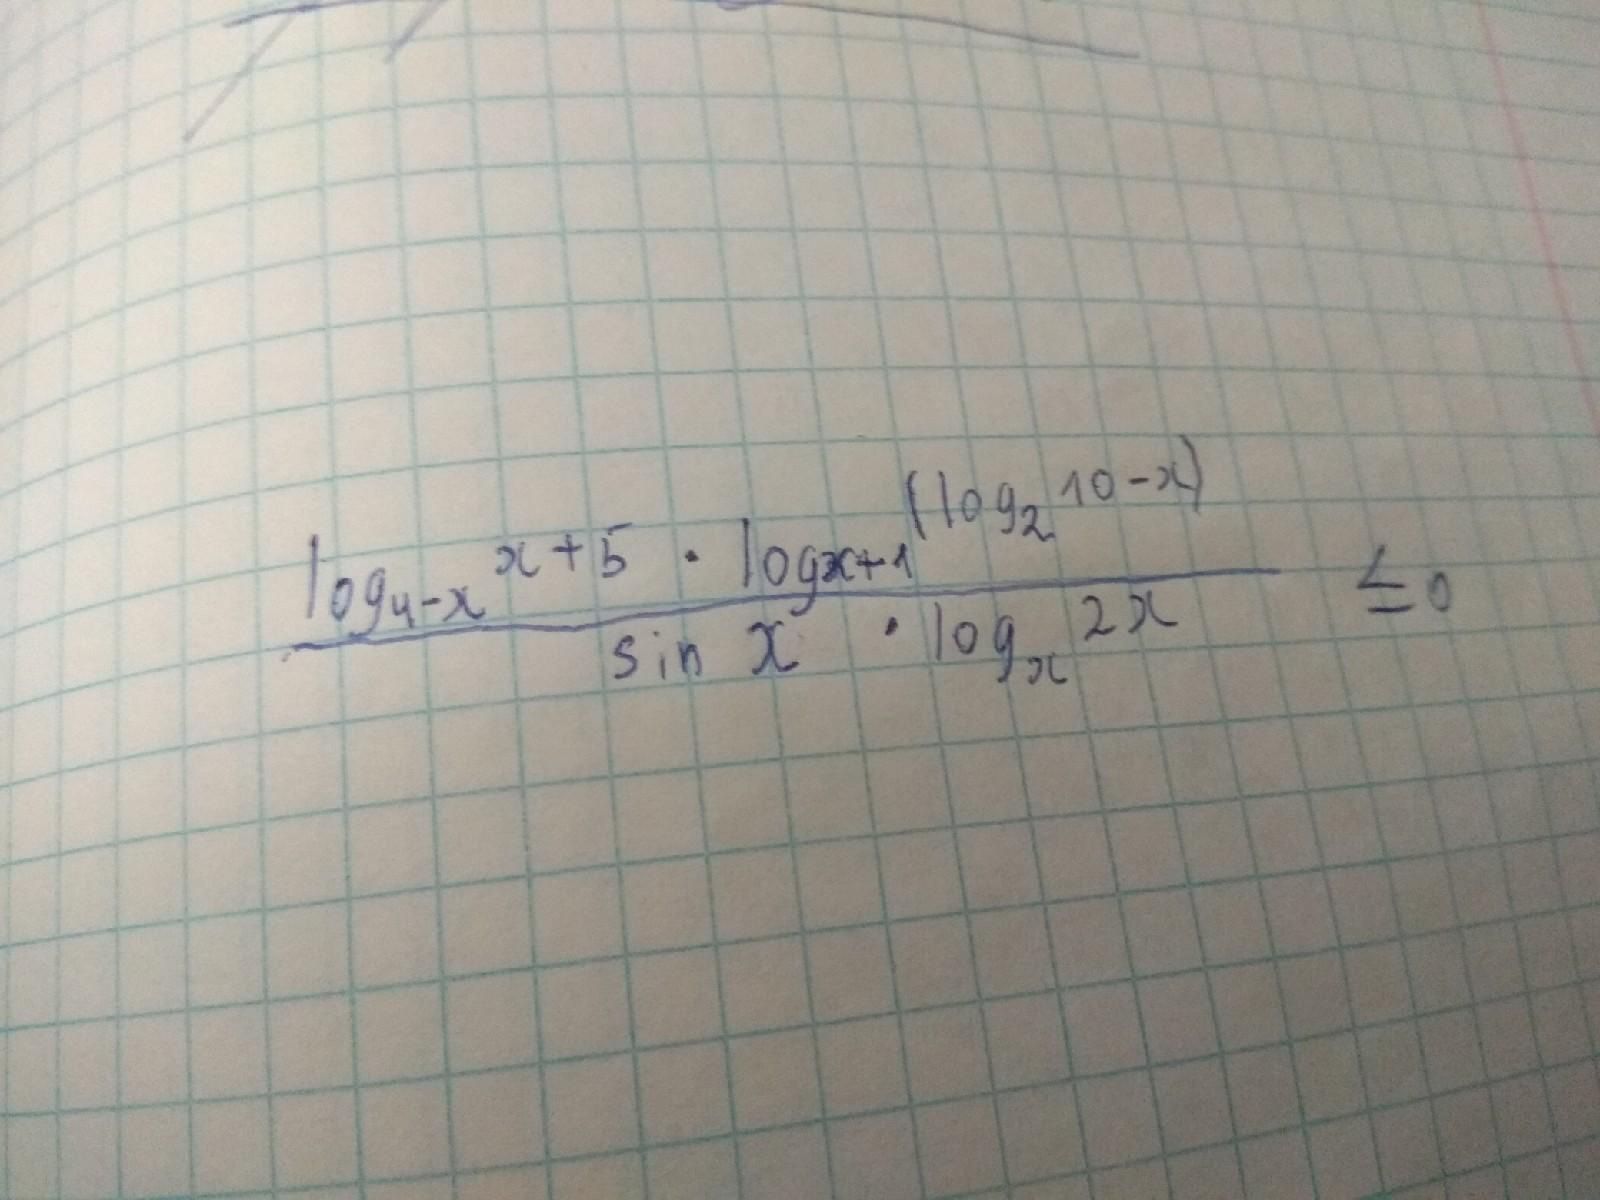 log₄₋ₓ x+5 · logₓ₊₁ (log₂ 10-x)
sin x · logₓ 2x ≤ 0